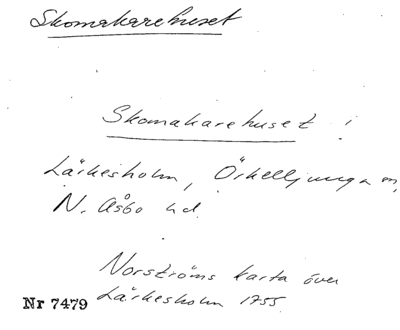 Skomakarehuset
Skomakarehuset i
Lärkesholm, Örkelljunga sn,
N. Åsbo hd.
Norströms karta över
Nr 7479 Lärkesholm 1755